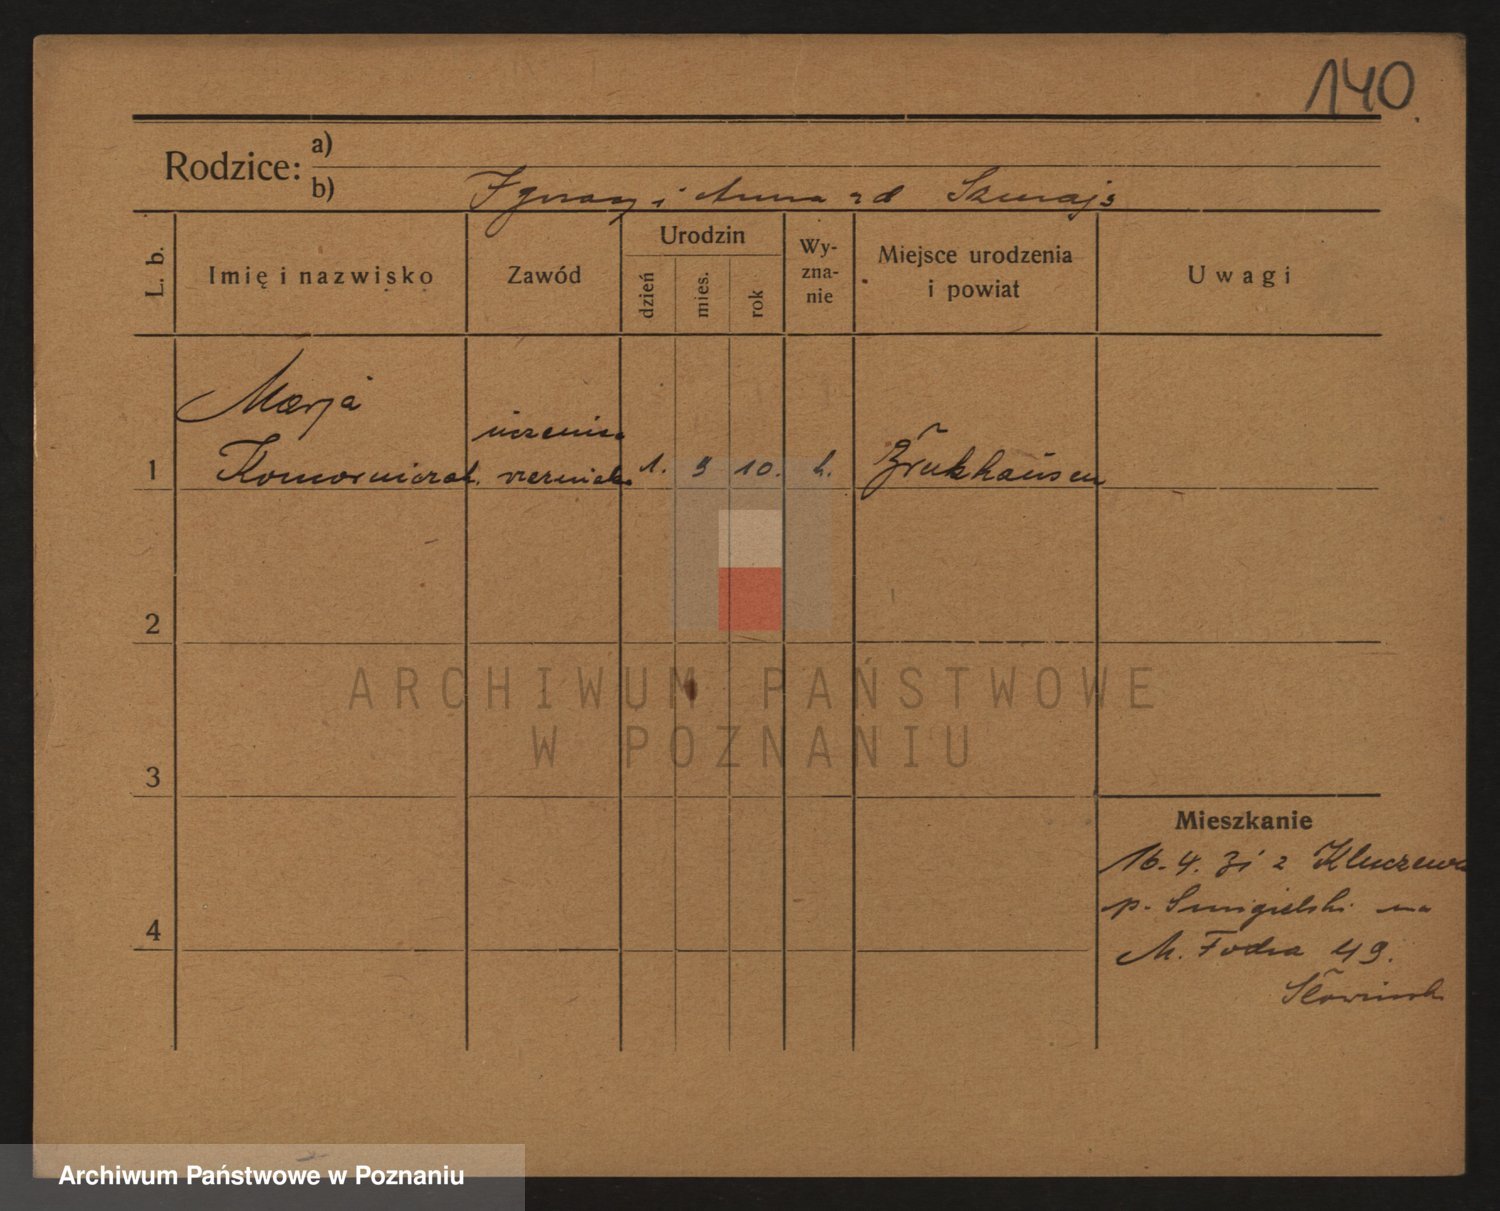 140.
Rodzice: a)
b) Ignacy i Anna zd Szmajs
L. b.
Imię i nazwisko
Zawód
Urodzin
dzień
mies.
rok
Wy-
zna-
nie
Miejsce urodzenia
i powiat
Uwagi
Marja
uczenica
1 Komorniczak. 1. 10. k.
2
3
4
Mieszkanie
16. 4. 31 z Kluczewa
p. Smigielski na
M. Focha 49.
ARCHIWUM PAŃSTWOWE
W POZNANIU
Archiwum Państwowe w Poznaniu